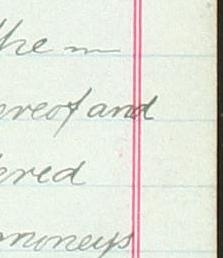 the
ereof and
ered
moneys